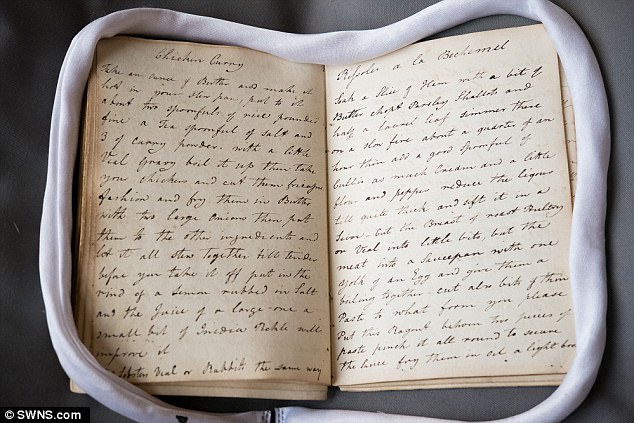 Chicken Curry
Take an ounce of Butter and make it
hot in your stew pan, put to it
about two spoonfuls of rice pounded
fine a Tea spoonful of salt and
3 of curry powder. with a little
Veal Gravy boil it up then take
your chickens and cut them fricasee
fashion and fry them in Butter
with two large onions then put
them to the other ingredients and
let it all stew together till tender
before you take it off put in the
rind of a lemon rubbed in Salt
and the Juice of a large one a
small bit of India Pickle will
improve it
Lobsters Veal or Rabbits the same way
Rissoles a la Bechemel
Soak a Slice of Ham with a bit of
Butter chopt Parsley Shallots and
half a laurel leaf simmer these
on a slow fire about a quarter of an
hour then add a good spoonful of
Cullis as much Cream and a little
flour and pepper reduce the liquor
till quite thick and sift it in a
Sieve - cut the Breast of roast Poultry
or Veal into little bits, put the
meat into a Saucepan with one
yolk of an Egg and give them a
boiling together - cut also bits of thin
Paste to what form you please
Put this Ragout between two pieces of
paste pinch it all round to secure
the sauce fry them in oil a light brown
© SWNS.com